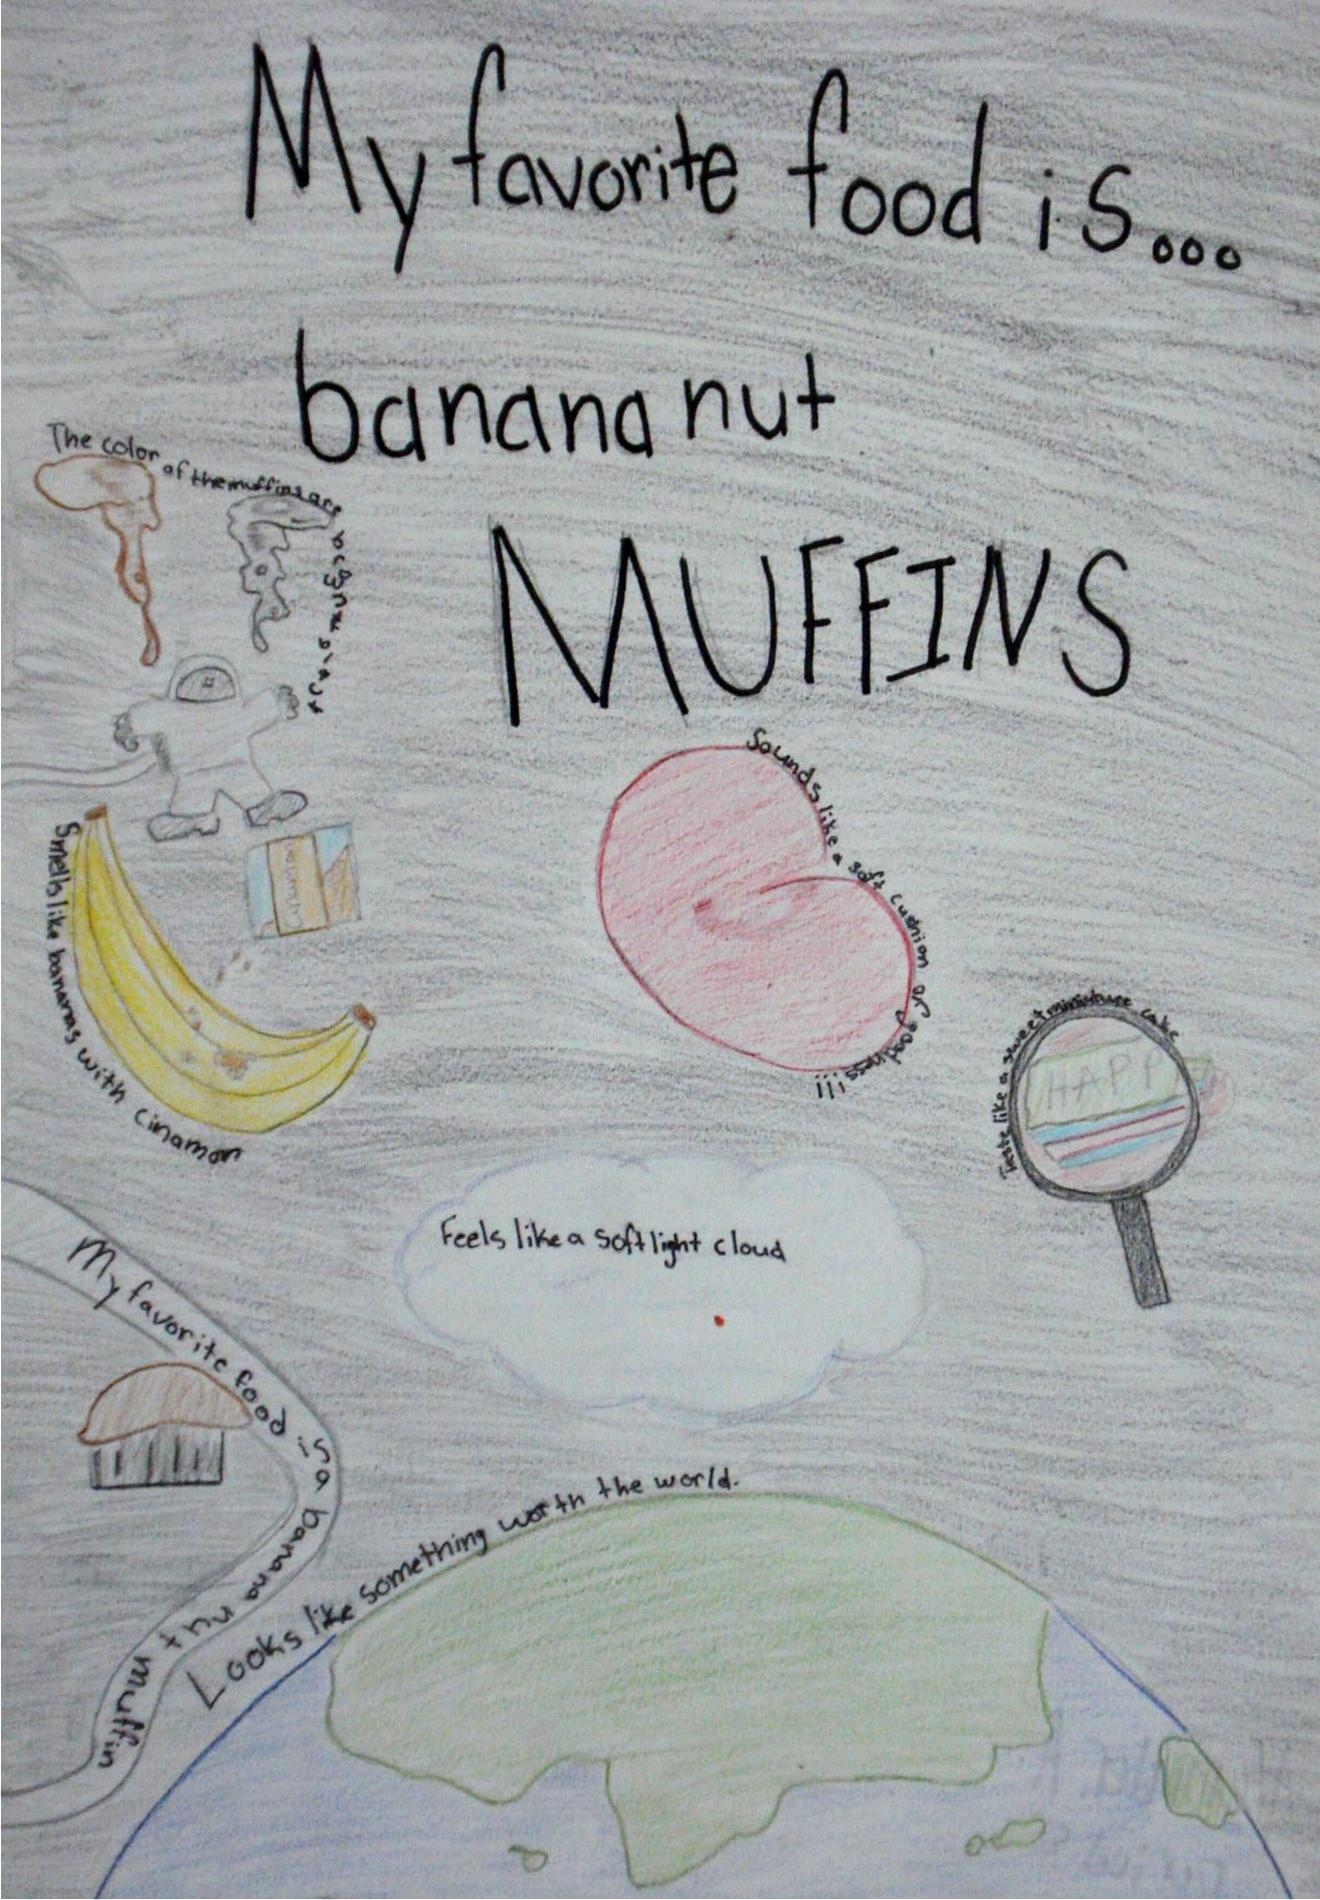 My favorite food is...
banana nut
MUFFINS
The color of the muffins are
Sounds like a soft cushion of goodness!!!
Smells like bananas with cinamon
Taste like a sweet miniture cake
HAPP
Feels like a soft light cloud
My favorite food is a banana nut muffin
Looks like something worth the world.